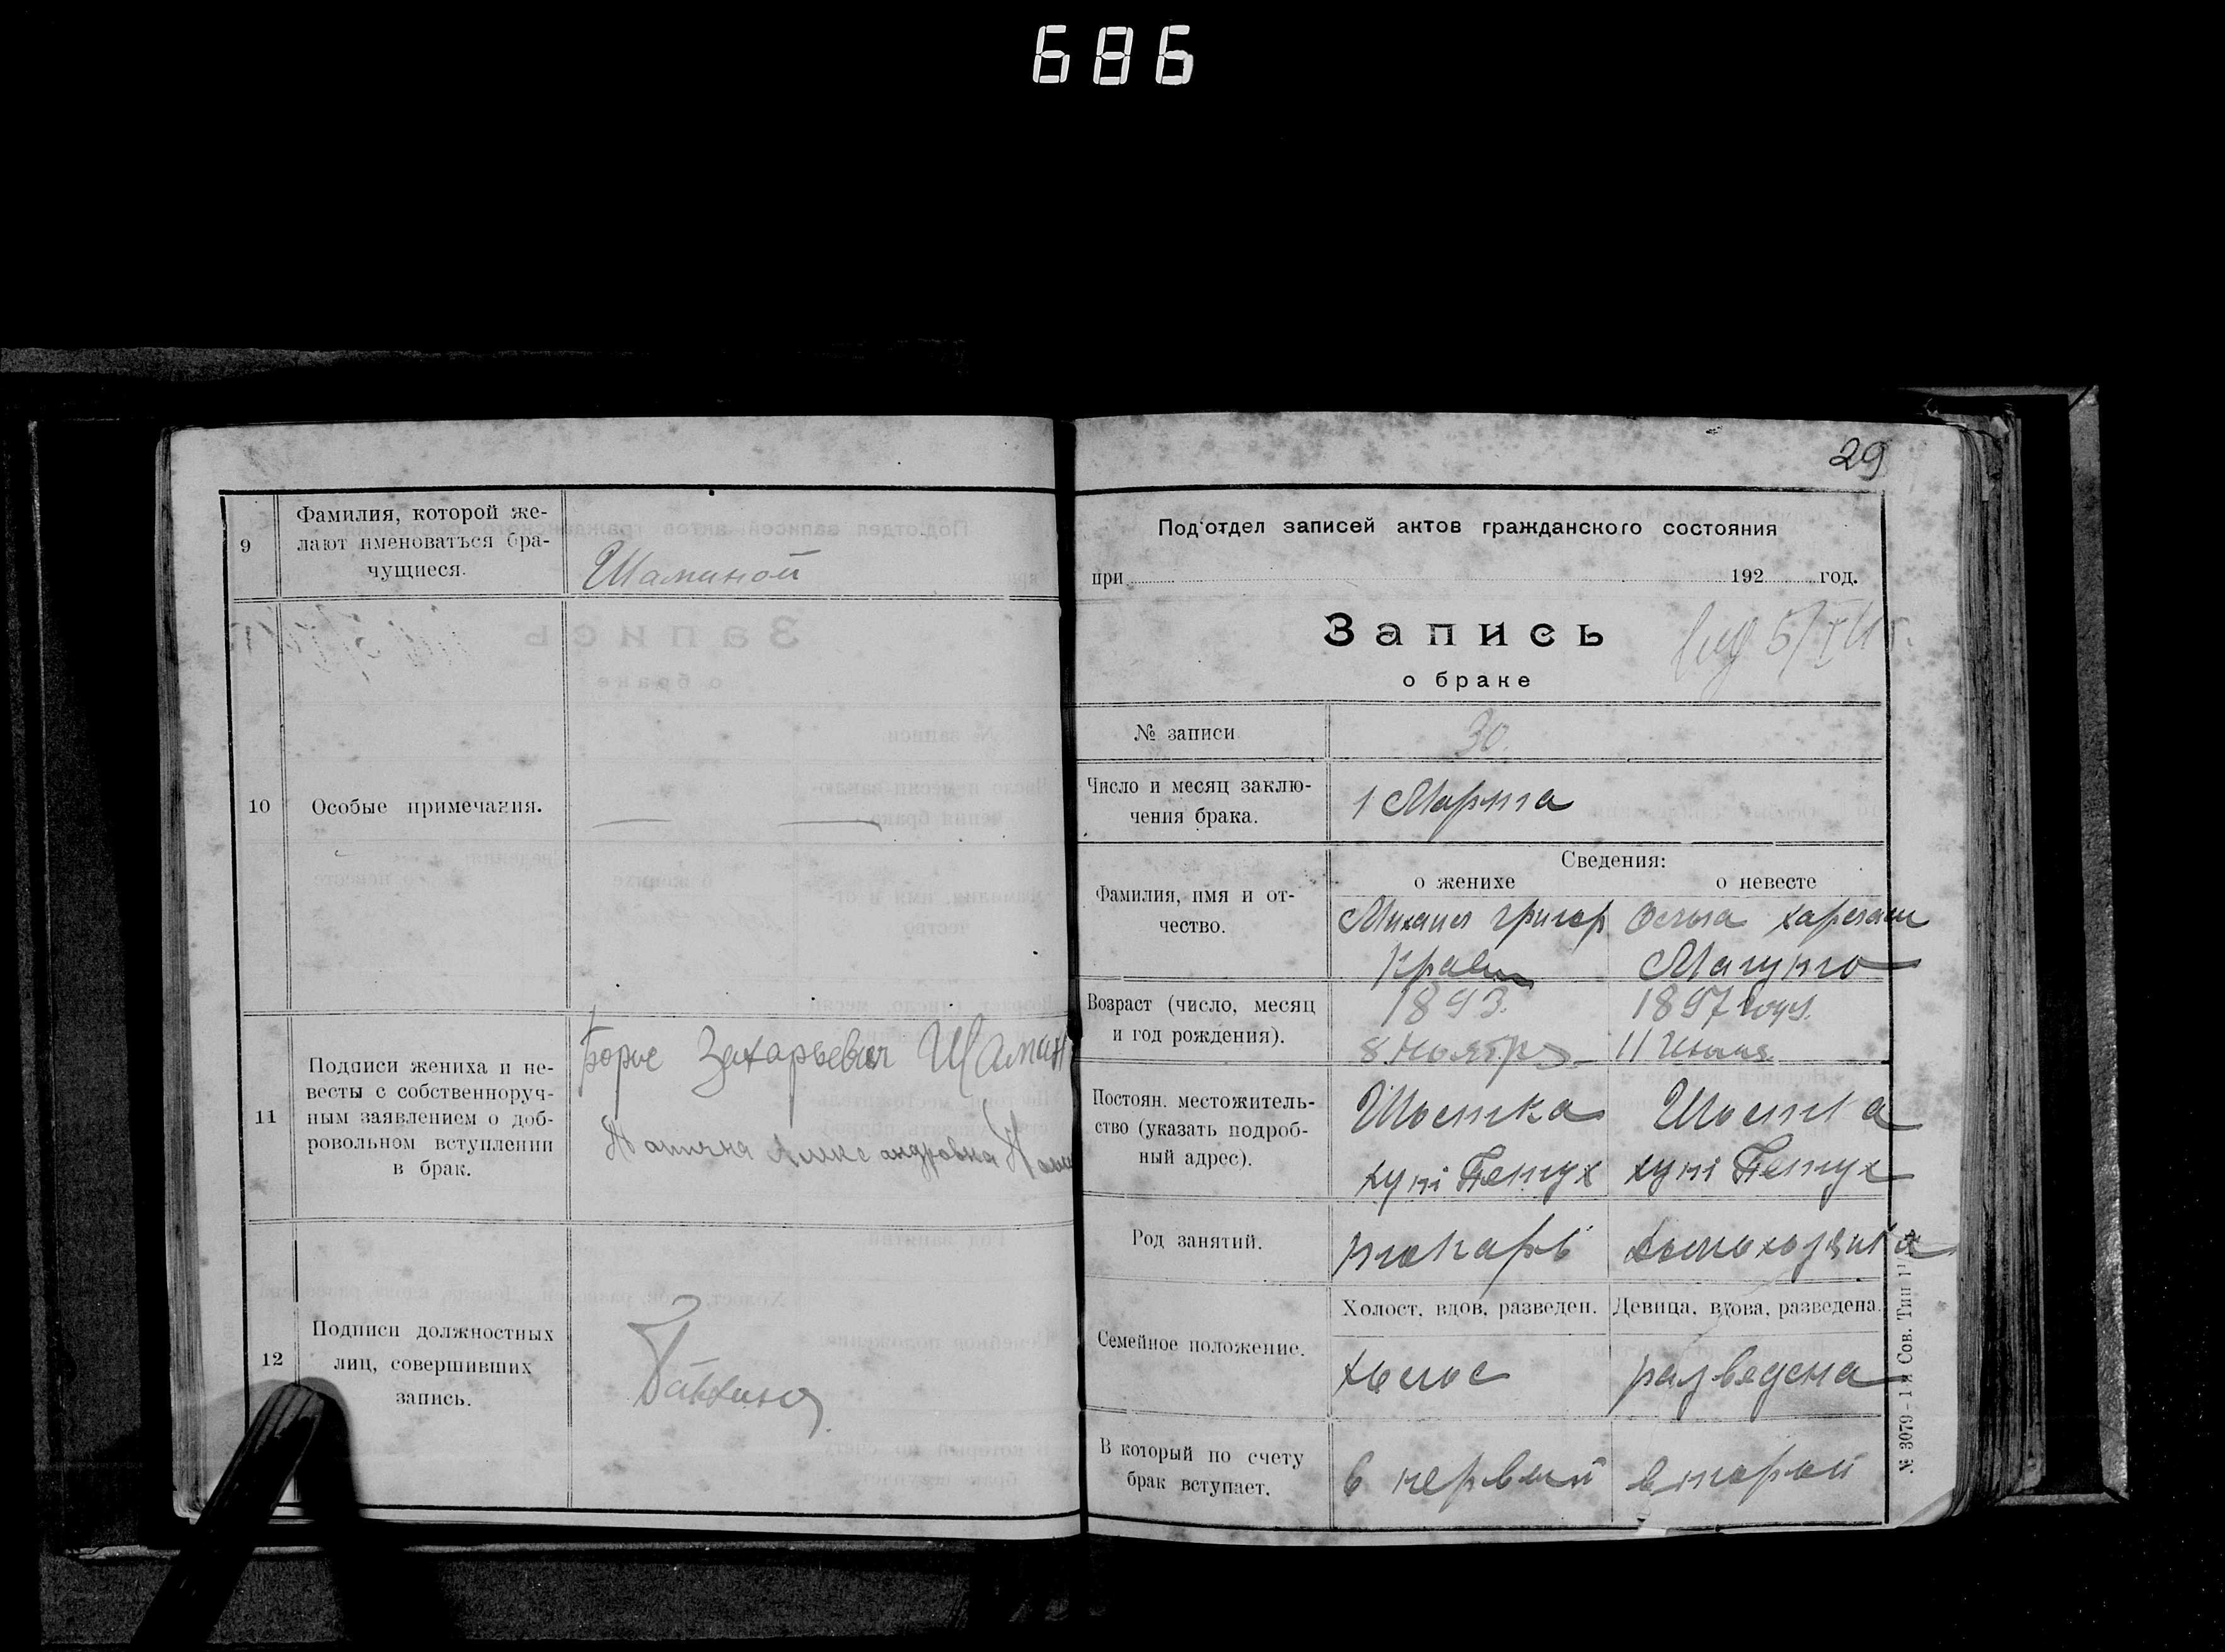 686
9
Фамилия, которой же-
лают именоваться бра-
чущиеся.
Шаминой
10
Особые примечания.
11
Подписи жениха и не-
весты с собственноруч-
ным заявлением о доб-
ровольном вступлении
в брак.
Борис Захарьевич Шамин
12
Подписи должностных
лиц, совершивших
запись.
29
Под'отдел записей актов гражданского состояния
при 192 год.
Запись
о браке
№ записи
30.
Число и месяц заклю-
чения брака.
1 Марта
Сведения:
о женихе о невесте
Фамилия, имя и от-
чество.
Михаил Григор
Кравец
Возраст (число, месяц
и год рождения).
1893.
8 Ноября
1897 году.
11
Постоян. местожитель-
ство (указать подроб-
ный адрес).
Шостка
хут Петух
Шостка
хут Петух
Род занятий.
токарь
домохозяйка
Семейное положение.
Холост, вдов, разведен.
Девица, вдова, разведена.
холос
разведена
В который по счету
брак вступает.
в первый
второй
№ 3079 - 1-я Сов. Тип